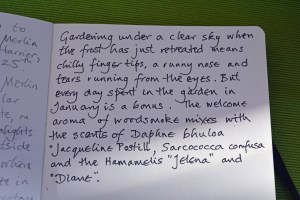 to
Merlin
Harner,
25
Merlin
lar
ate,
nlights
utside
in
Gardening under a clear sky when
the frost has just retreated means
chilly fingertips, a runny nose and
tears running from the eyes. But
every day spent in the garden in
January is a bonus. The welcome
aroma of woodsmoke mixes with
the scents of Daphne bhuloa
"Jacqueline Postill, Sarcococca confusa
and the Hamamelis "Jelena" and
"Diane".